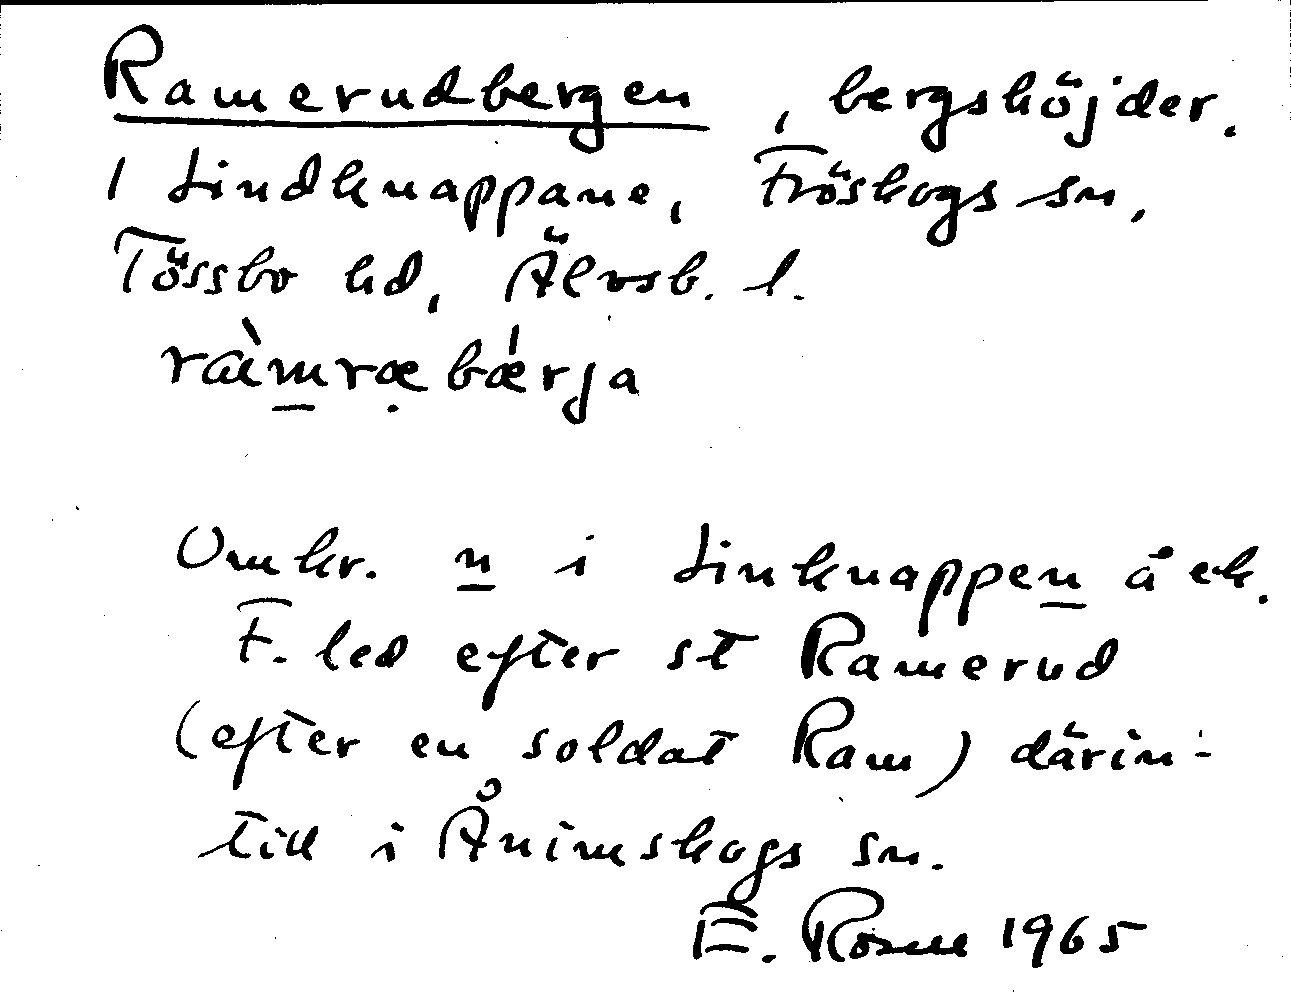 Ramerudbergen, bergshöjder.
1 Lindknappane, Fröskogs sn,
Tössbo hd, Älvsb. l.
ràmræbǽrja
Omkr. n i Linknappen å ek.
F. led efter st Ramerud
(efter en soldat Ram) därin-
till i Ånimskogs sn.
E. Rosne 1965